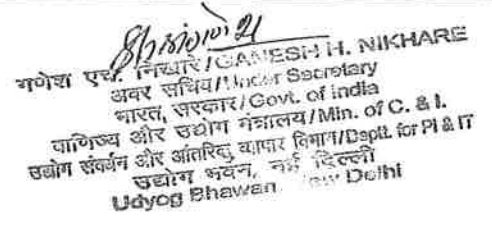 गणेश एच. निखारे/GANESH H. NIKHARE
अवर सचिव/Under Secretary
भारत, सरकार/Govt. of India
वाणिज्य और उद्योग मंत्रालय/Min. of C. & I.
उद्योग संवर्धन और आंतरिक व्यापार विभाग/Deptt. for PI & IT
उद्योग भवन, नई दिल्ली
Udyog Bhawan, New Delhi